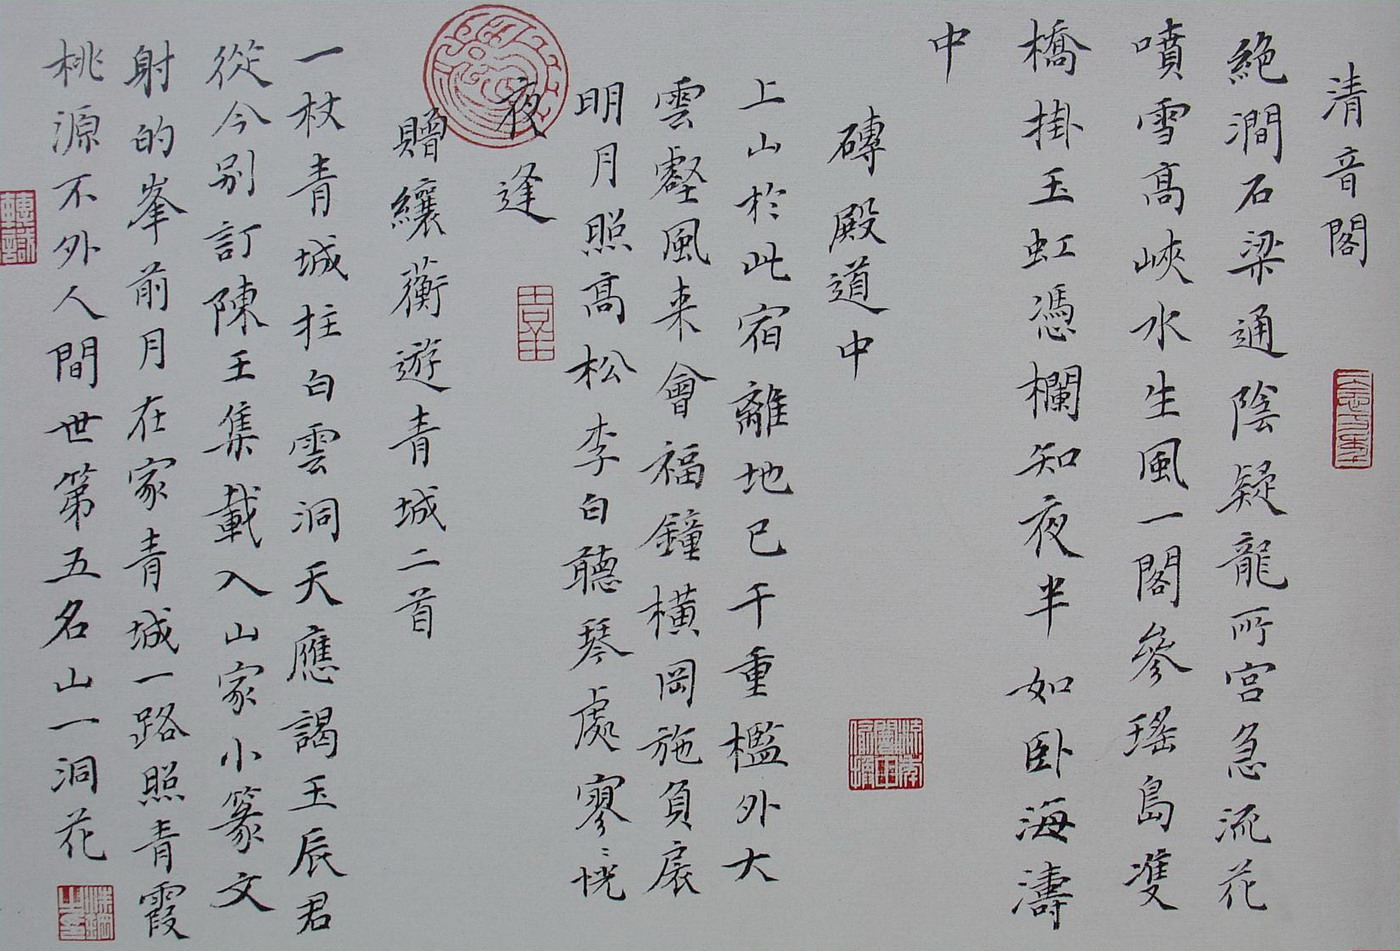 清音閣
絕澗石梁通陰疑龍所宮急流花
噴雪高峽水生風一閣參瑤島雙
橋掛玉虹憑欄知夜半如臥海濤
中
磚殿道中
上山於此宿離地已千重檻外大
雲壑風来會福鐘橫岡施負扆
明月照高松李白聽琴處寥〻恍
夜逢
贈纕蘅遊青城二首
一杖青城拄白雲洞天應謁玉辰君
從今別訂陳王集載入山家小篆文
射的峯前月在家青城一路照青霞
桃源不外人間世第五名山一洞花